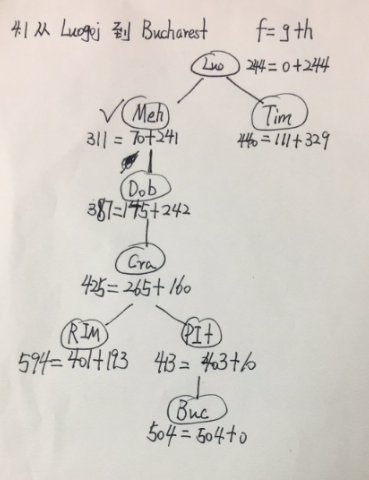 4.1 从 Luogej 到 Bucharest f=g+h
Luo 244=0+244
Meh Tim
311=70+241 440=111+329
Dob
387=145+242
Cra
425=265+160
RIM PIt
594=401+193 413=403+10
Buc
504=504+0